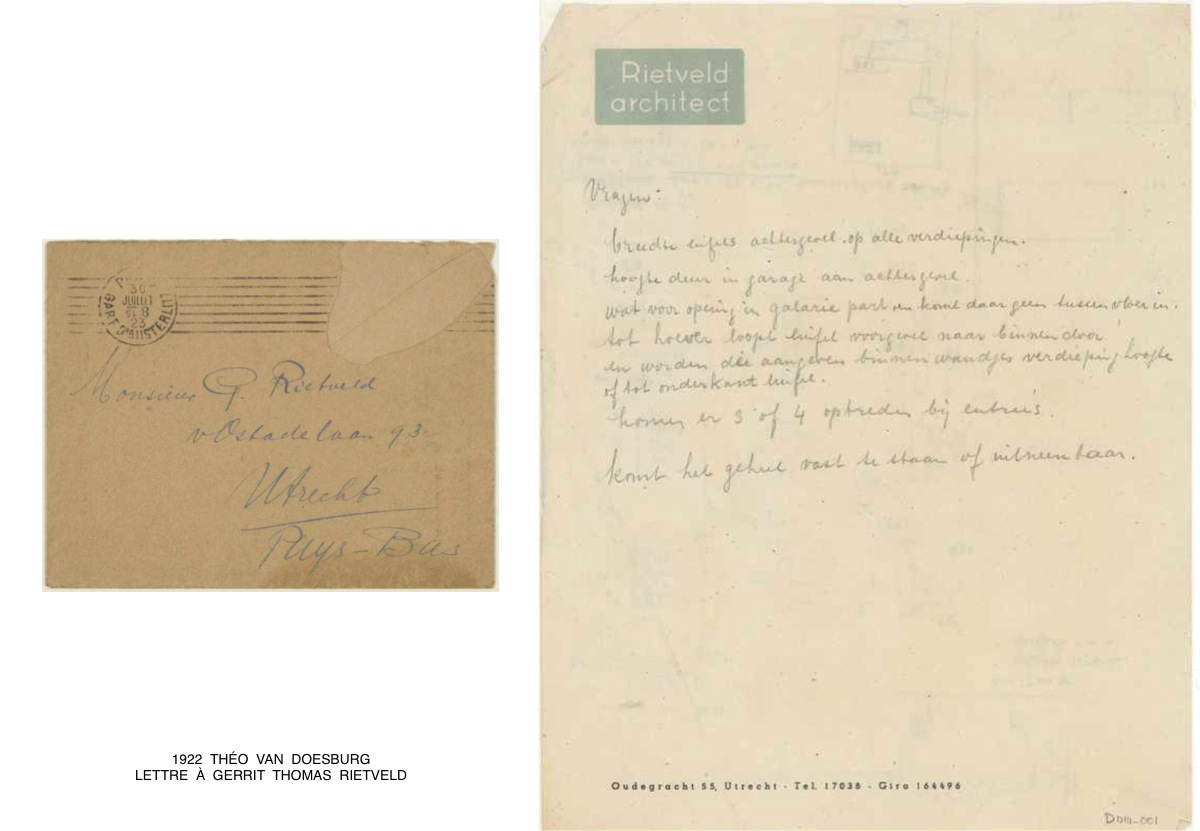 30
JUILLET
23
GARE D'AUSTERLITZ
Monsieur G. Rietveld
v Ostadelaan 93
Utrecht
Pays-Bas
1922 THÉO VAN DOESBURG
LETTRE À GERRIT THOMAS RIETVELD
Rietveld
architect
Vragen:
breedte luifels achtergevel op alle verdiepingen.
hoogte deur in garage aan achtergevel.
wat voor opening in galarie part en komt daar geen tussenvloer in.
tot hoever loopt luifel voorgevel naar binnen door
en worden die aangeven binnenwandjes verdieping hoogte
of tot onderkant luifel.
komen er 3 of 4 optreden bij entreis.
komt het geheel vast te staan of uitneembaar.
Oudegracht 55, Utrecht - Tel. 17038 - Giro 164496
Dom_001